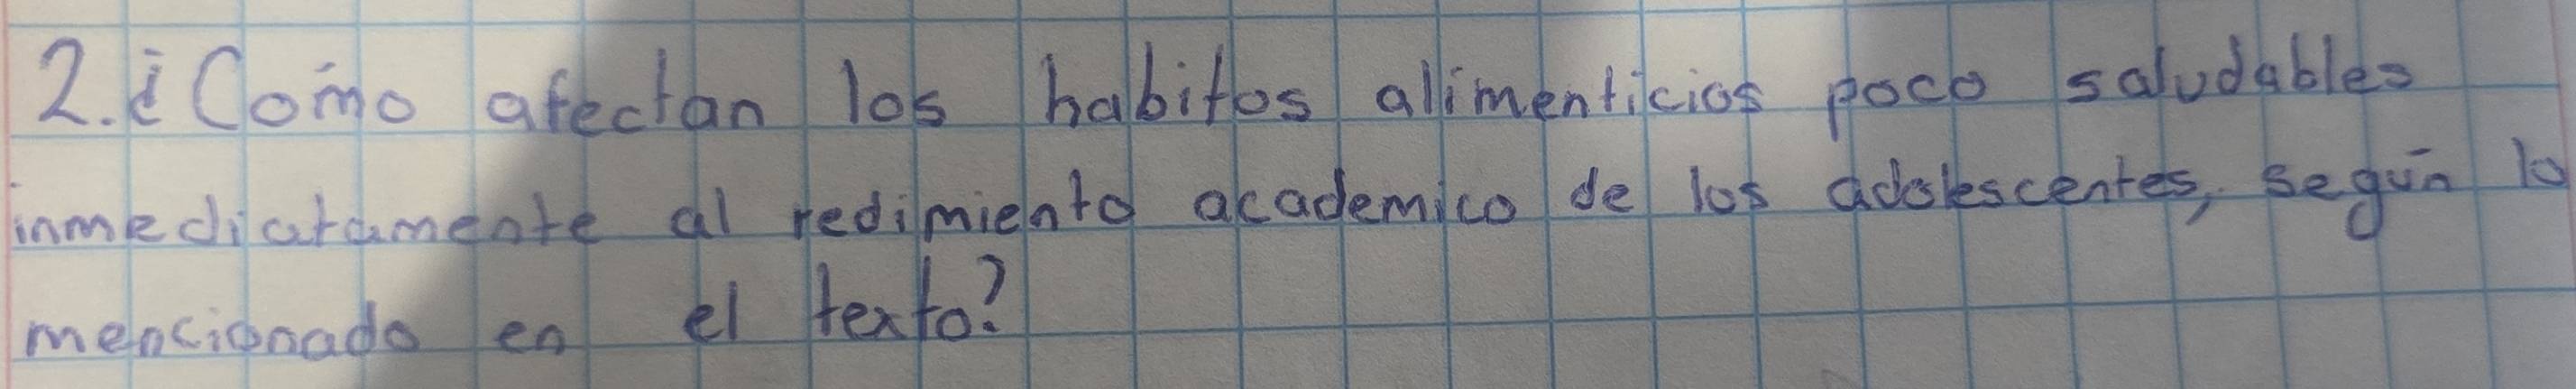 2. ¿Cómo afectan los habitos alimenticios poco saludables
inmediatamente al redimiento academico de los adolescentes, según lo
mencionado en el texto?